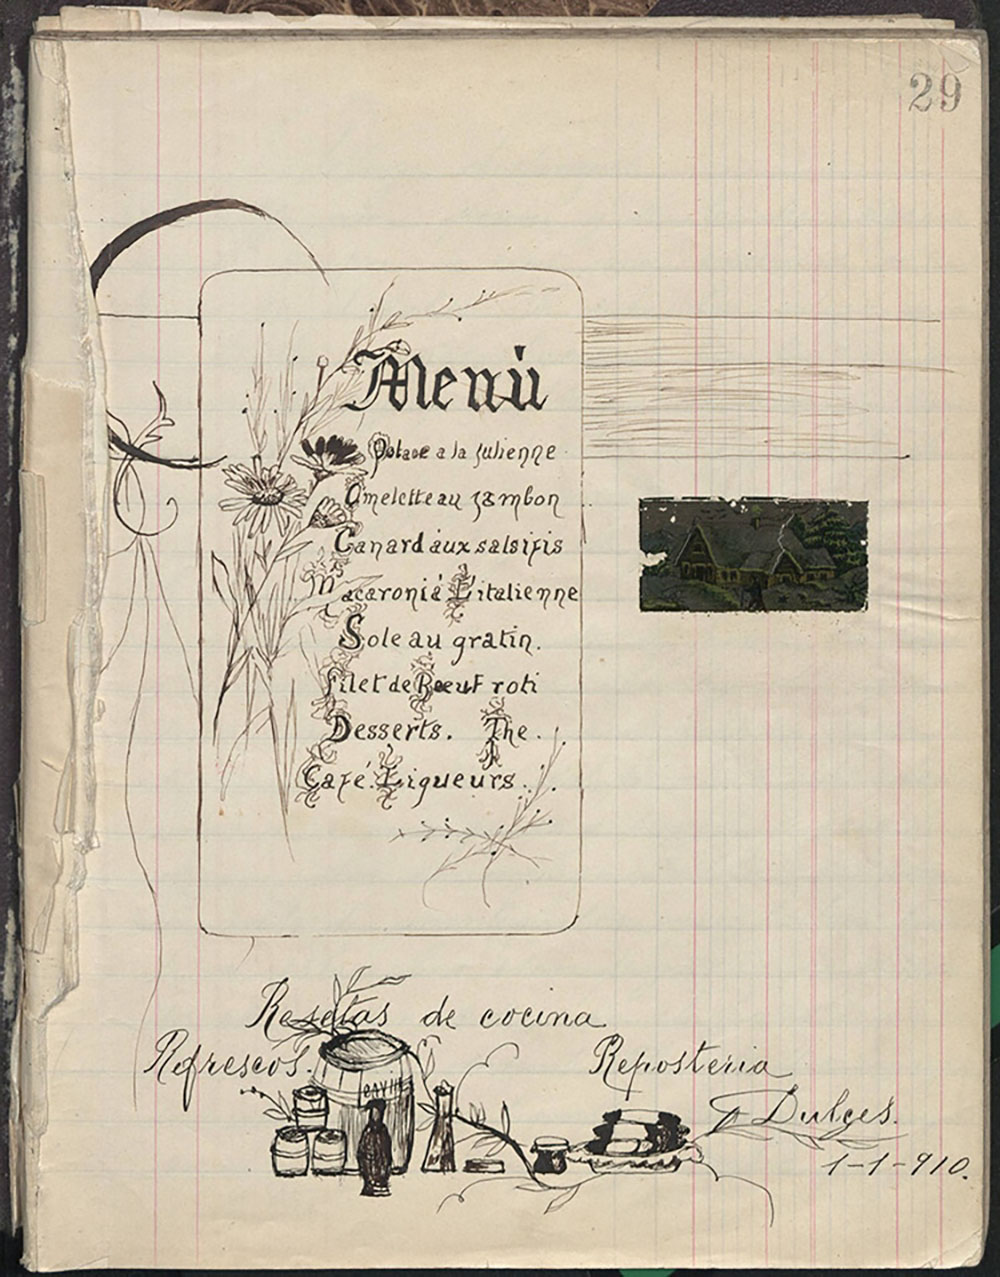 29
Menú
Potage a la Julienne
Omelette au jambon
Canard aux salsifis
Macaroni á L'italienne
Sole au gratin.
filet de Boeuf roti
Desserts. The.
Café. Liqueurs.
Resetas de cocina
Refrescos.
Reposteria
Dulces.
1-1-910.